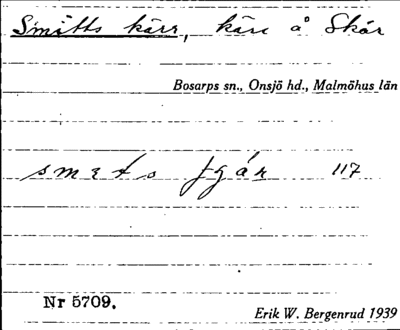 Smitts kärr, kärr å Skår
Bosarps sn., Onsjö hd., Malmöhus län
117
Nr 5709.
Erik W. Bergenrud 1939